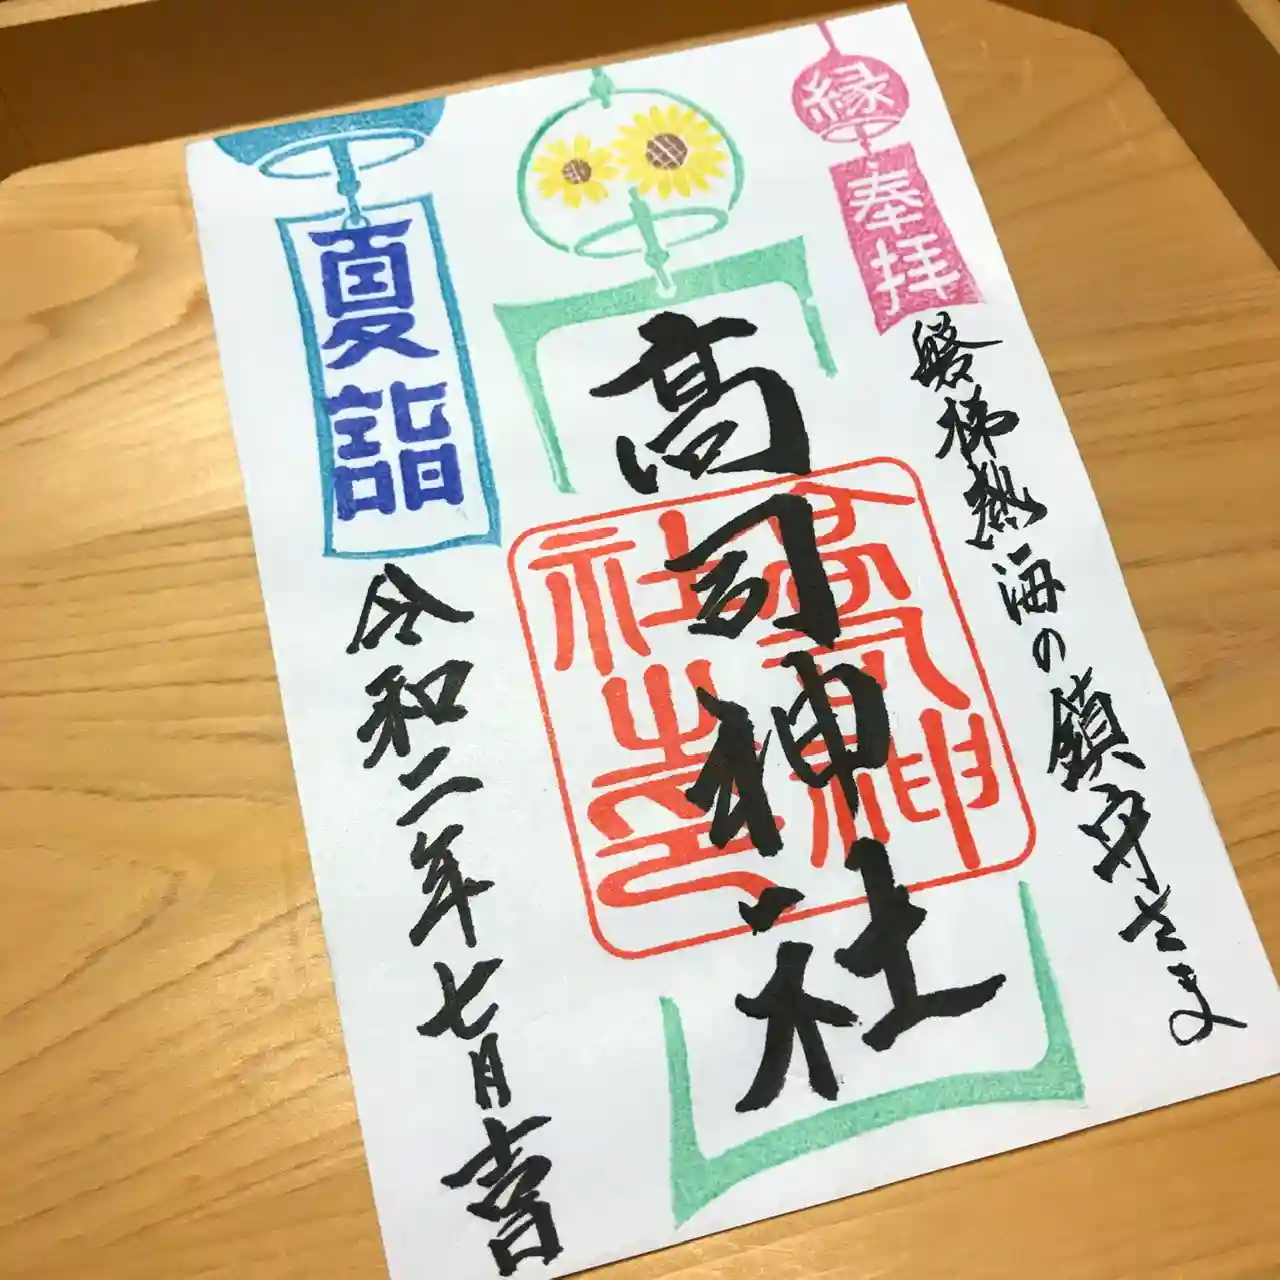 縁
奉拝
磐梯熱海の鎮守さま
高司神社
高司神社之印
夏詣
令和二年七月吉日